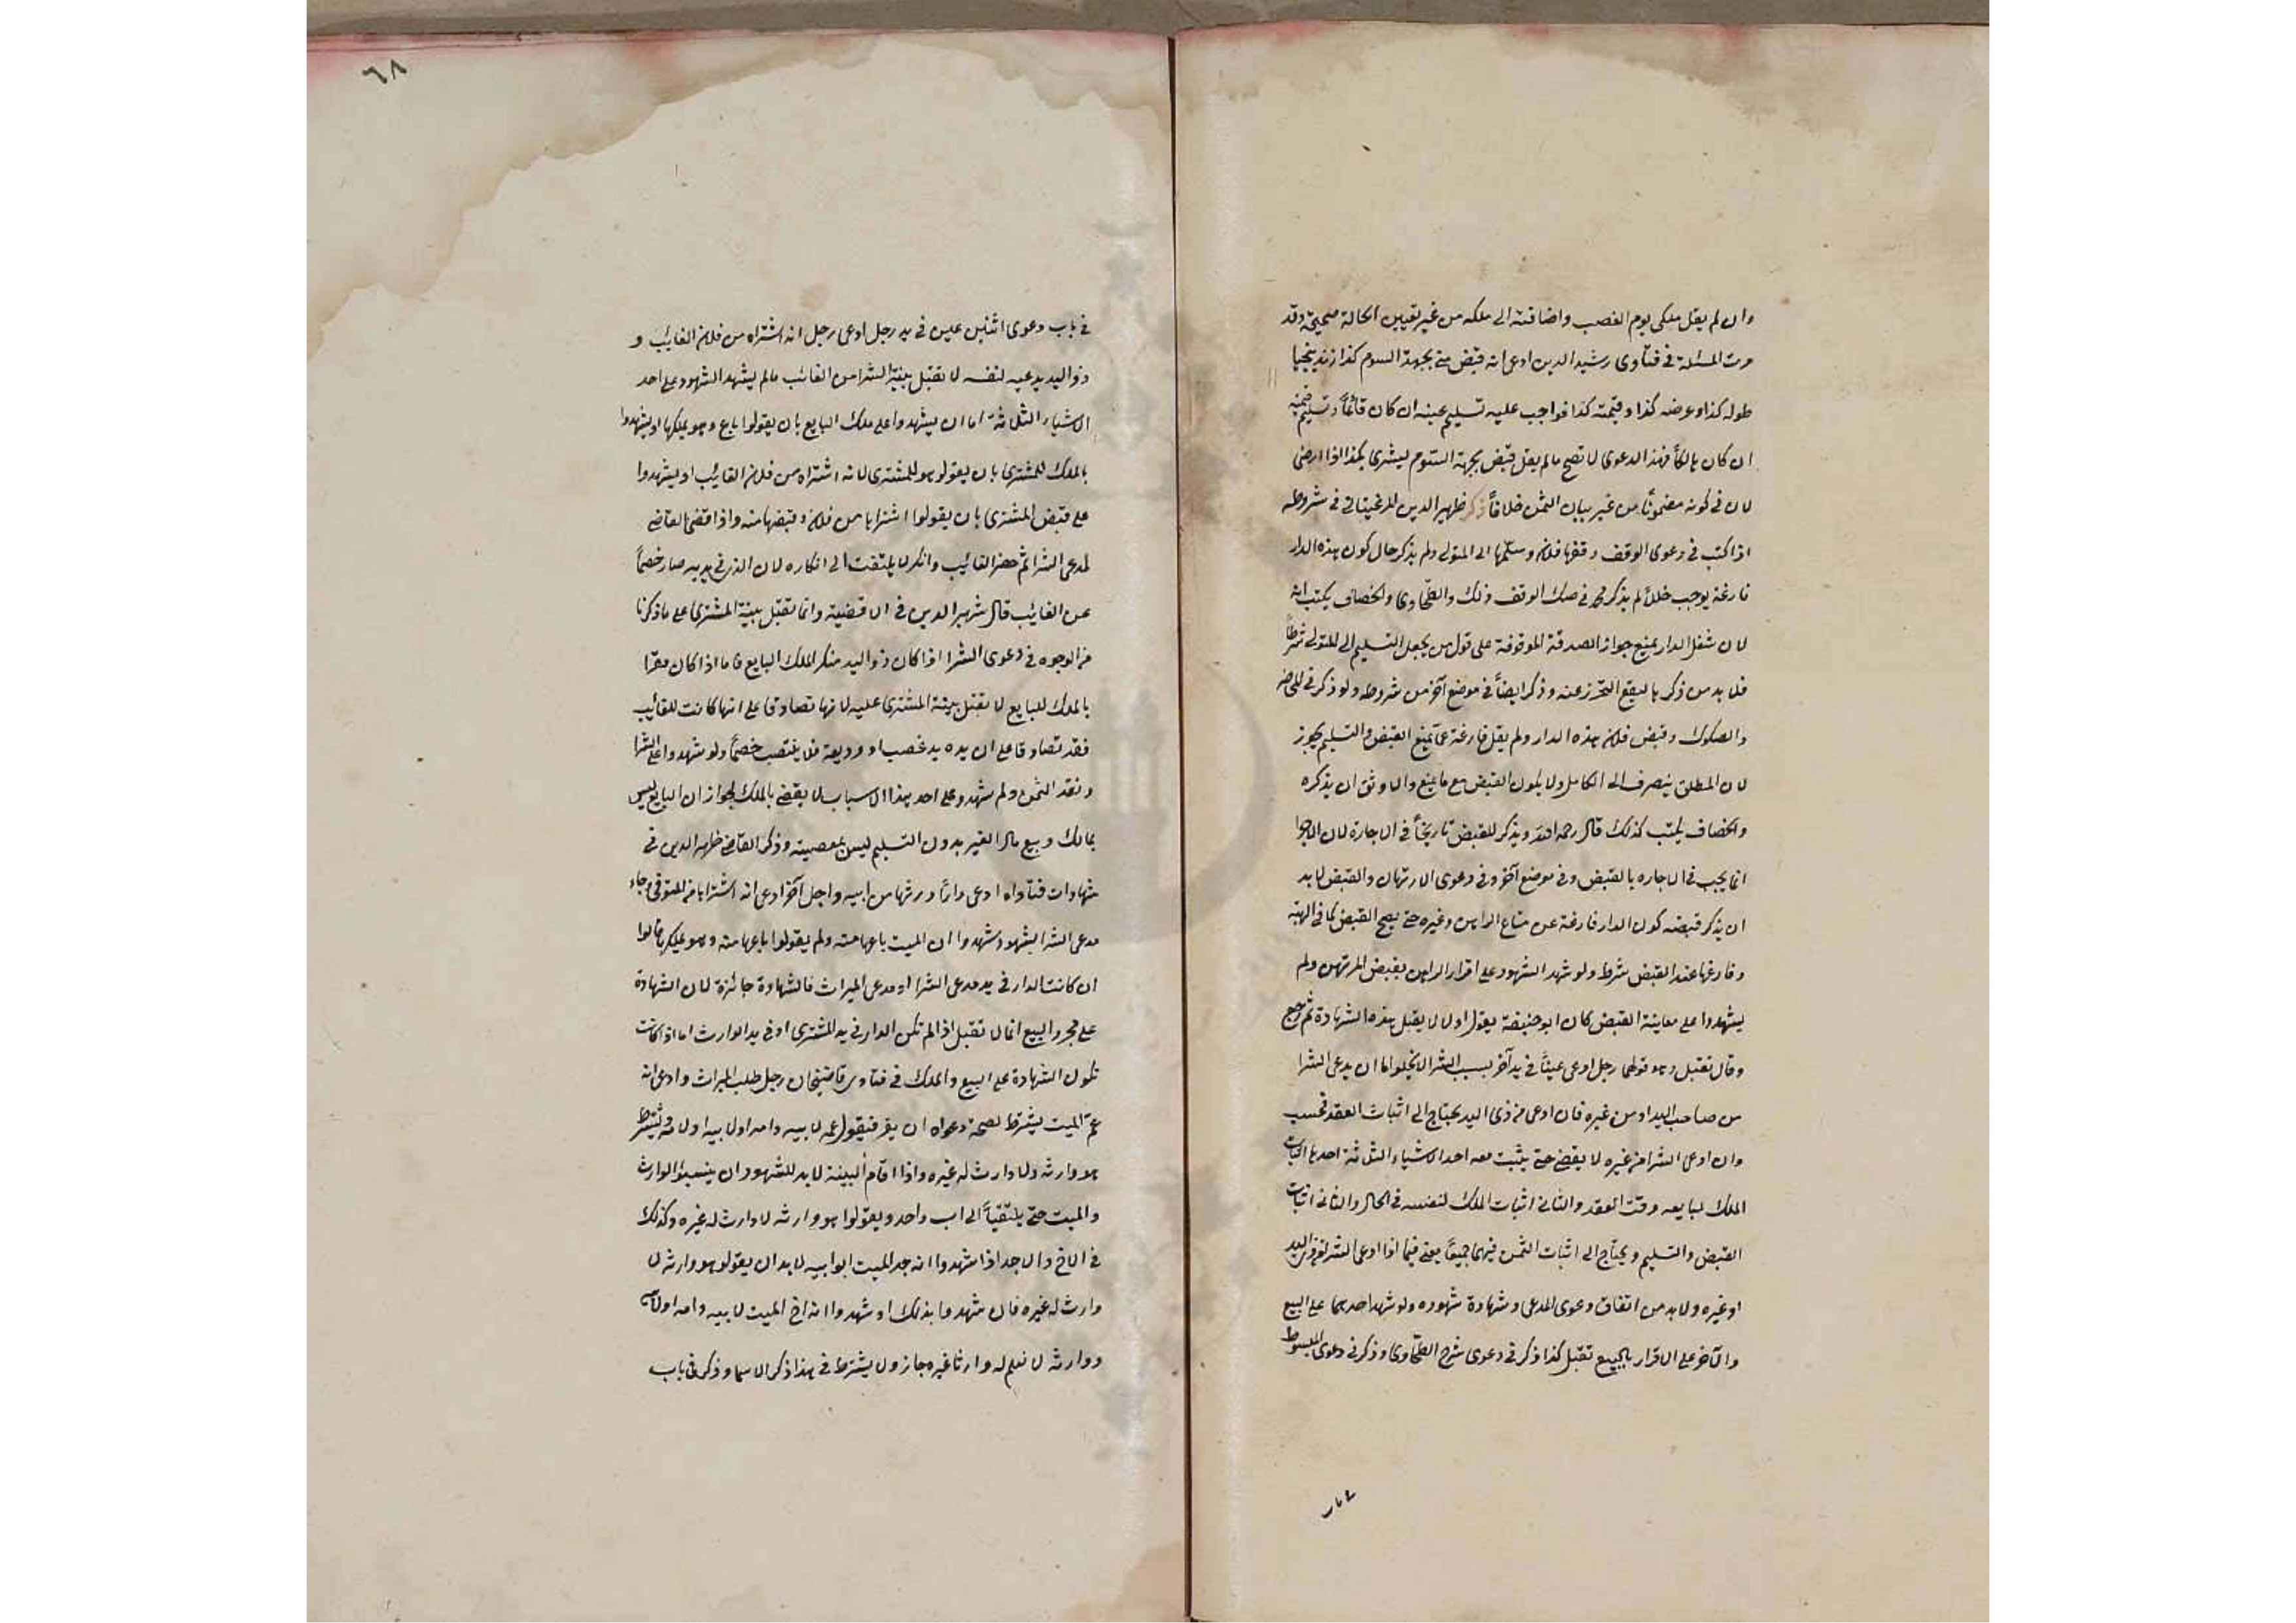 وان لم يقل ملكى يوم الغصب واضافته الى ملكه من غير تعيين الحالة صحيحة وقد
مرت المسئلة فى فتاوى رشيد الدين ادعى انه قبض منى بجهة السوم كذا
طوله كذا وعرضه كذا وقيمته كذا فواجب عليه تسليم عينه ان كان قائما وتسليم قيمته
ان كان هالكا فهذا الدعوى لا تصح مالم يقل قبض بجهة السوم ليشترى بكذا اذا
لان فى كونه مضمونا من غير بيان الثمن خلافا ذكر ظهير الدين المرغينانى فى شروطه
اذا كتب فى دعوى الوقف وقفها فلان وسلمها الى المتولى ولم يذكر حال كون هذه الدار
فارغة يوجب خللا لم يذكر محمد فى صك الوقف ذلك والطحاوى والخصاف يكتب انه
لان شغل الدار يمنع جواز الصدقة الموقوفة على قول من يجعل التسليم الى المتولى شرطا
فلا بد من ذكر ما يقع التحرز عنه وذكر ايضا فى موضع آخر من شروطه ولو ذكر فى
والصكوك وقبض فلان هذه الدار ولم يقل فارغة عما يمنع القبض والتسليم يجوز
لان المطلق ينصرف الى الكامل ولا يكون القبض مع ما يمنع والاوثق ان يذكره
والخصاف يكتب كذلك قال رحمه الله ويذكر للقبض تاريخا فى الاجارة لان
انما يجب فى الاجاره بالقبض وفى موضع آخر وفى دعوى الارتهان والقبض لا بد
ان يذكر قبضه كون الدار فارغة عن متاع الراهن وغيره حتى يصح القبض كما فى الهبة
وفارغها عند القبض شرط ولو شهد الشهود على اقرار الراهن بقبض المرتهن ولم
يشهدوا على معاينة القبض كان ابو حنيفة يقول اولا لا يقبل هذه الشهادة ثم رجع
وقال تقبل وهو قولهما رجل ادعى عينا فى يد آخر بسبب الشرا لا يخلو اما ان يدعى الشرا
من صاحب اليد او من غيره فان ادعى من ذى اليد يحتاج الى اثبات العقد فحسب
وان ادعى الشرا من غيره لا يقضى حتى يثبت معه احد الاشياء الثلاثة احدها اثبات
الملك لبايعه وقت العقد والثانى اثبات الملك لنفسه فى الحال والثانى اثبات
القبض والتسليم ويحتاج الى اثبات الثمن فيهما جميعا يعنى فيما اذا ادعى الشرا من ذى اليد
او غيره ولا بد من اتفاق دعوى المدعى وشهادة شهوده ولو شهد احدهما على البيع
والآخر على الاقرار بالبيع تقبل كذا ذكر فى دعوى شرح الطحاوى وذكر فى دعوى المبسوط
٦٨
فى باب دعوى اثنين عين فى يد رجل ادعى رجل انه اشتراه من فلان الغائب و
ذو اليد يدعيه لنفسه لا تقبل بينة الشرا من الغائب مالم يشهد الشهود على احد
الاشياء الثلاثة اما ان يشهدوا على ملك البايع بان يقولوا باع وهو يملكها او يشهدوا
بالملك للمشترى بان يقولو هو للمشترى لانه اشتراه من فلان الغائب او يشهدوا
على قبض المشترى بان يقولوا اشتراها من فلان وقبضها منه واذا قضى القاضى
لمدعى الشرا ثم حضر الغائب وانكر لا يلتفت الى انكاره لان الذى فى يديه صار خصما
عن الغايب قال شهير الدين فى الاقضية وانما تقبل بينة المشترى على ما ذكرنا
من الوجوه فى دعوى الشرا اذا كان ذو اليد منكر الملك البايع فاما اذا كان مقرا
بالملك للبايع لا تقبل بينة المشترى عليه لانها تصادقا على انها كانت للغائب
فقد تصادقا على ان يده يد غصب او وديعة فلا ينتصب خصما ولو شهدوا على الشرا
ونقد الثمن ولم شهدو على احد هذا الاسباب لا يقضى بالملك لجواز ان البايع ليس
بمالك وبيع مال الغير بدون التسليم ليس بمعصية وذكر القاضى ظهير الدين فى
شهادات فتاواه ادعى دارا ورثها من ابيه واجل آخر ادعى انه اشتراها من المتوفى وجاء
مدعى الشرا بشهود وشهدوا ان الميت باعها منه ولم يقولوا باعها منه وهو يملكها قالوا
ان كانت الدار فى يد مدعى الشرا او مدعى الميراث فالشهادة جائزة لان الشهادة
على مجرد البيع انما لا تقبل اذا لم تكن الدار فى يد المشترى او فى يد الوارث اما اذا كانت
تكون الشهادة على البيع والملك فى فتاوى قاضيخان رجل طلب الميراث وادعى انه
عم الميت يشترط لصحة دعواه ان يفسر فيقول عمه لابيه وامه او لابيه او لامه ويشترط
هو وارثه ولا وارث له غيره واذا اقام البينة لا بد للشهود ان ينسبوا الوارث
والميت حتى يلتقيا الى اب واحد ويقولوا هو وارثه لا وارث له غيره وكذلك
فى الاخ والاجد اذا شهدوا انه جد الميت ابو ابيه لا بد ان يقولو هو وارثه لا
وارث له غيره فان شهدوا بذلك او شهدوا انه اخ الميت لابيه وامه او لامه
ووارثه لا نعلم له وارثا غيره جاز ولا يشترط فى هذا ذكر الاسما وذكر فى باب